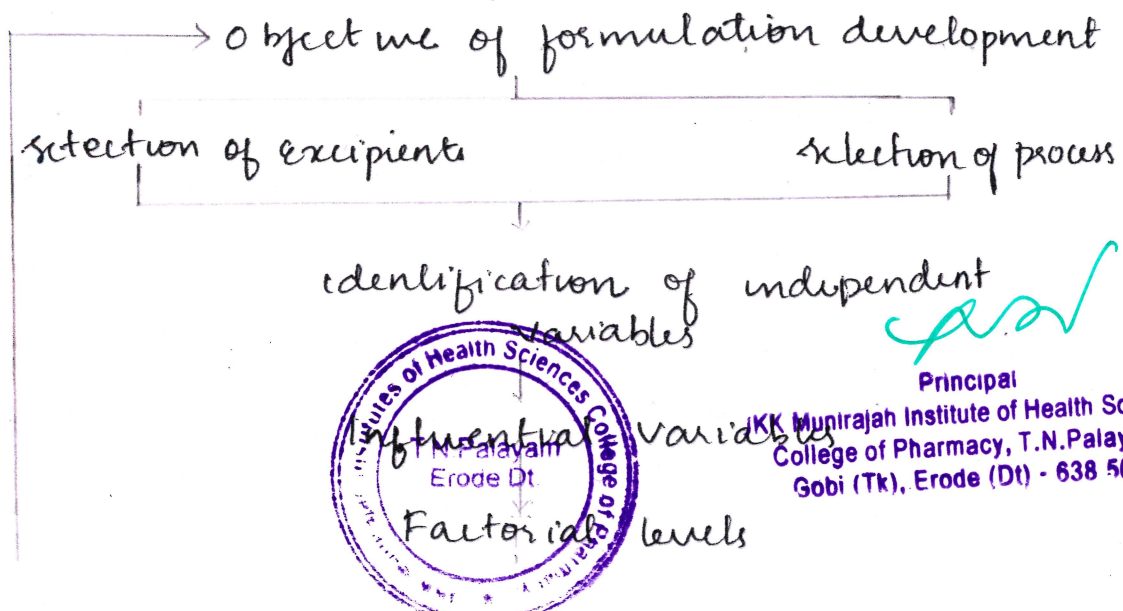 Objective of formulation development
selection of excipients
selection of process
identification of independent
variables
Influential variables
Factorial levels
Institutes of Health Sciences College of Pharmacy
T.N.Palayam
Erode Dt.
Principal
KK Munirajah Institute of Health Sc
College of Pharmacy, T.N.Palay
Gobi (Tk), Erode (Dt) - 638 50